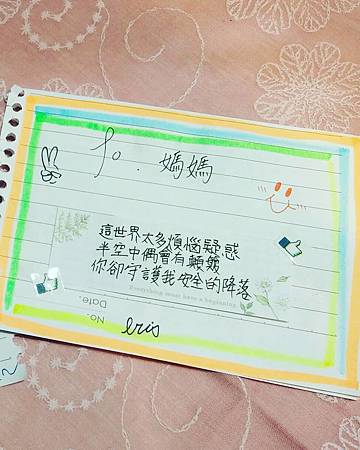 To. 媽媽
這世界太多煩惱疑惑
半空中偶會有顛簸
你卻守護我安全的降落
Everything must have a beginning
No.
Date.
eris